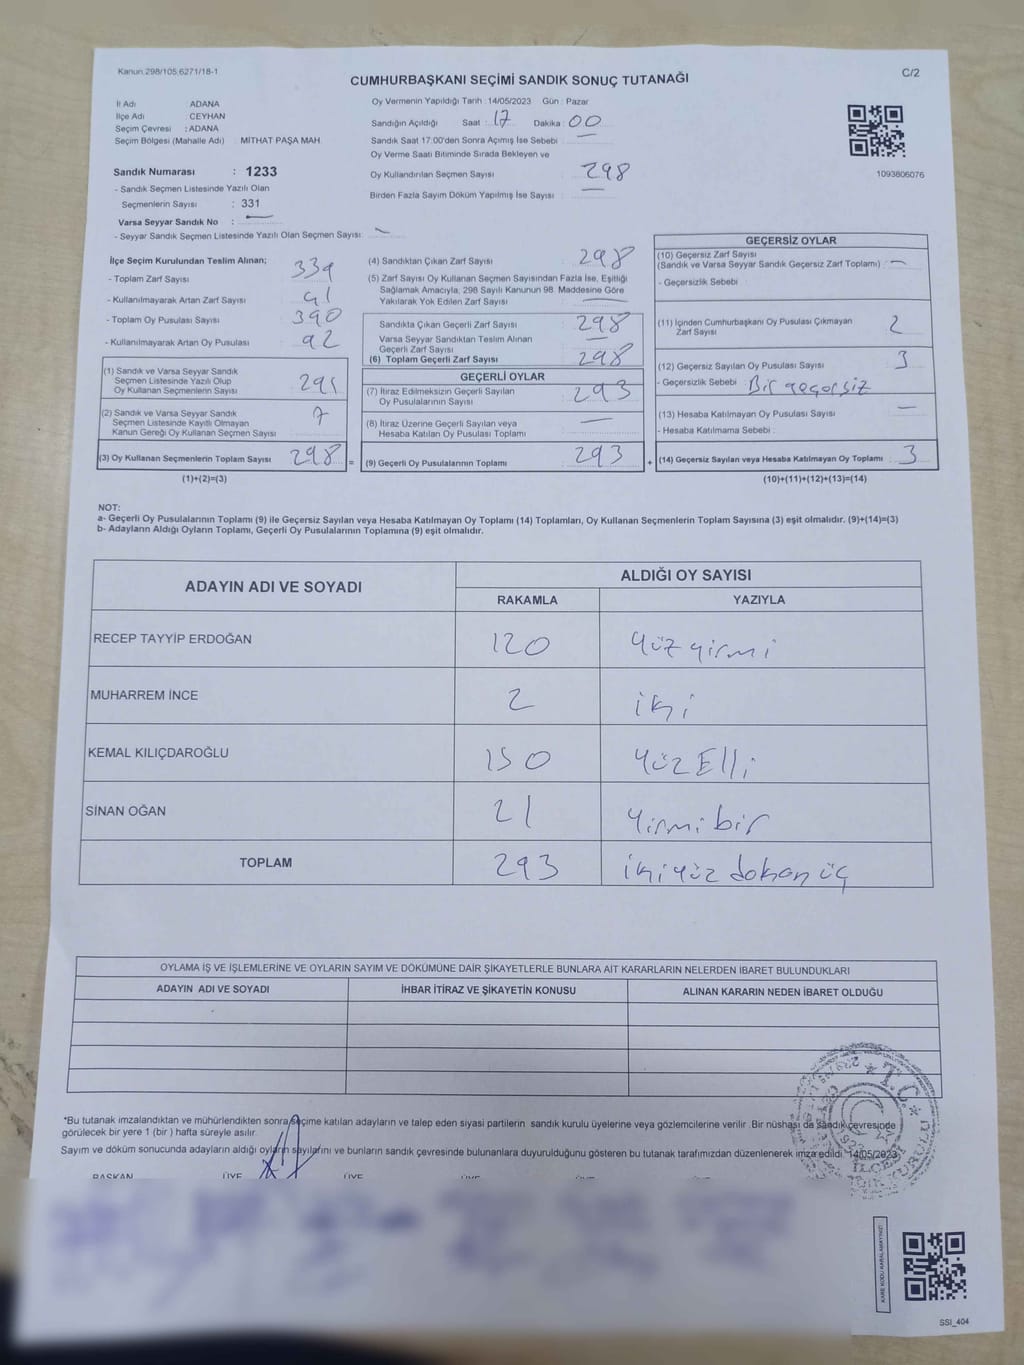 Kanun.298/105,6271/18-1
CUMHURBAŞKANI SEÇİMİ SANDIK SONUÇ TUTANAĞI
C/2
İl Adı ADANA
İlçe Adı CEYHAN
Seçim Çevresi : ADANA
Seçim Bölgesi (Mahalle Adı) : MİTHAT PAŞA MAH.
Oy Vermenin Yapıldığı Tarih : 14/05/2023 Gün : Pazar
Sandığın Açıldığı Saat : 17 Dakika : 00
Sandık Saat 17:00'den Sonra Açımış İse Sebebi : —
Oy Verme Saati Bitiminde Sırada Bekleyen ve
Oy Kullandırılan Seçmen Sayısı : 298
Birden Fazla Sayım Döküm Yapılmış İse Sayısı : —
1093806076
Sandık Numarası : 1233
- Sandık Seçmen Listesinde Yazılı Olan
Seçmenlerin Sayısı : 331
Varsa Seyyar Sandık No : —
- Seyyar Sandık Seçmen Listesinde Yazılı Olan Seçmen Sayısı: —
İlçe Seçim Kurulundan Teslim Alınan;
- Toplam Zarf Sayısı 339
- Kullanılmayarak Artan Zarf Sayısı 41
- Toplam Oy Pusulası Sayısı 390
- Kullanılmayarak Artan Oy Pusulası 92
(1) Sandık ve Varsa Seyyar Sandık
Seçmen Listesinde Yazılı Olup
Oy Kullanan Seçmenlerin Sayısı 291
(2) Sandık ve Varsa Seyyar Sandık
Seçmen Listesinde Kayıtlı Olmayan
Kanun Gereği Oy Kullanan Seçmen Sayısı 7
(3) Oy Kullanan Seçmenlerin Toplam Sayısı 298 =
(1)+(2)=(3)
(4) Sandıktan Çıkan Zarf Sayısı : 298
(5) Zarf Sayısı Oy Kullanan Seçmen Sayısından Fazla İse, Eşitliği
Sağlamak Amacıyla, 298 Sayılı Kanunun 98. Maddesine Göre
Yakılarak Yok Edilen Zarf Sayısı : —
Sandıkta Çıkan Geçerli Zarf Sayısı : 298
Varsa Seyyar Sandıktan Teslim Alınan
Geçerli Zarf Sayısı : —
(6) Toplam Geçerli Zarf Sayısı : 298
GEÇERLİ OYLAR
(7) İtiraz Edilmeksizin Geçerli Sayılan
Oy Pusulalarının Sayısı : 293
(8) İtiraz Üzerine Geçerli Sayılan veya
Hesaba Katılan Oy Pusulası Toplamı : —
(9) Geçerli Oy Pusulalarının Toplamı : 293 +
GEÇERSİZ OYLAR
(10) Geçersiz Zarf Sayısı
(Sandık ve Varsa Seyyar Sandık Geçersiz Zarf Toplamı) : —
- Geçersizlik Sebebi :
(11) İçinden Cumhurbaşkanı Oy Pusulası Çıkmayan
Zarf Sayısı : 2
(12) Geçersiz Sayılan Oy Pusulası Sayısı : 3
- Geçersizlik Sebebi : Bir geçersiz
(13) Hesaba Katılmayan Oy Pusulası Sayısı : —
- Hesaba Katılmama Sebebi :
(14) Geçersiz Sayılan veya Hesaba Katılmayan Oy Toplamı : 3
(10)+(11)+(12)+(13)=(14)
NOT:
a- Geçerli Oy Pusulalarının Toplamı (9) ile Geçersiz Sayılan veya Hesaba Katılmayan Oy Toplamı (14) Toplamları, Oy Kullanan Seçmenlerin Toplam Sayısına (3) eşit olmalıdır. (9)+(14)=(3)
b- Adayların Aldığı Oyların Toplamı, Geçerli Oy Pusulalarının Toplamına (9) eşit olmalıdır.
ADAYIN ADI VE SOYADI
ALDIĞI OY SAYISI
RAKAMLA YAZIYLA
RECEP TAYYİP ERDOĞAN 120 Yüz yirmi
MUHARREM İNCE 2 iki
KEMAL KILIÇDAROĞLU 150 Yüz Elli
SİNAN OĞAN 21 Yirmi bir
TOPLAM 293 iki yüz doksan üç
OYLAMA İŞ VE İŞLEMLERİNE VE OYLARIN SAYIM VE DÖKÜMÜNE DAİR ŞİKAYETLERLE BUNLARA AİT KARARLARIN NELERDEN İBARET BULUNDUKLARI
ADAYIN ADI VE SOYADI İHBAR İTİRAZ VE ŞİKAYETİN KONUSU ALINAN KARARIN NEDEN İBARET OLDUĞU
*Bu tutanak imzalandıktan ve mühürlendikten sonra seçime katılan adayların ve talep eden siyasi partilerin sandık kurulu üyelerine veya gözlemcilerine verilir. Bir nüshası da sandık çevresinde
görülecek bir yere 1 (bir) hafta süreyle asılır.
Sayım ve döküm sonucunda adayların aldığı oyların sayılarını ve bunların sandık çevresinde bulunanlara duyurulduğunu gösteren bu tutanak tarafımızdan düzenlenerek imza edildi. 14/05/2023
BAŞKAN ÜYE ÜYE ÜYE ÜYE ÜYE
T.C.
KARE KODU KARALAMAYINIZ!
SSI_404